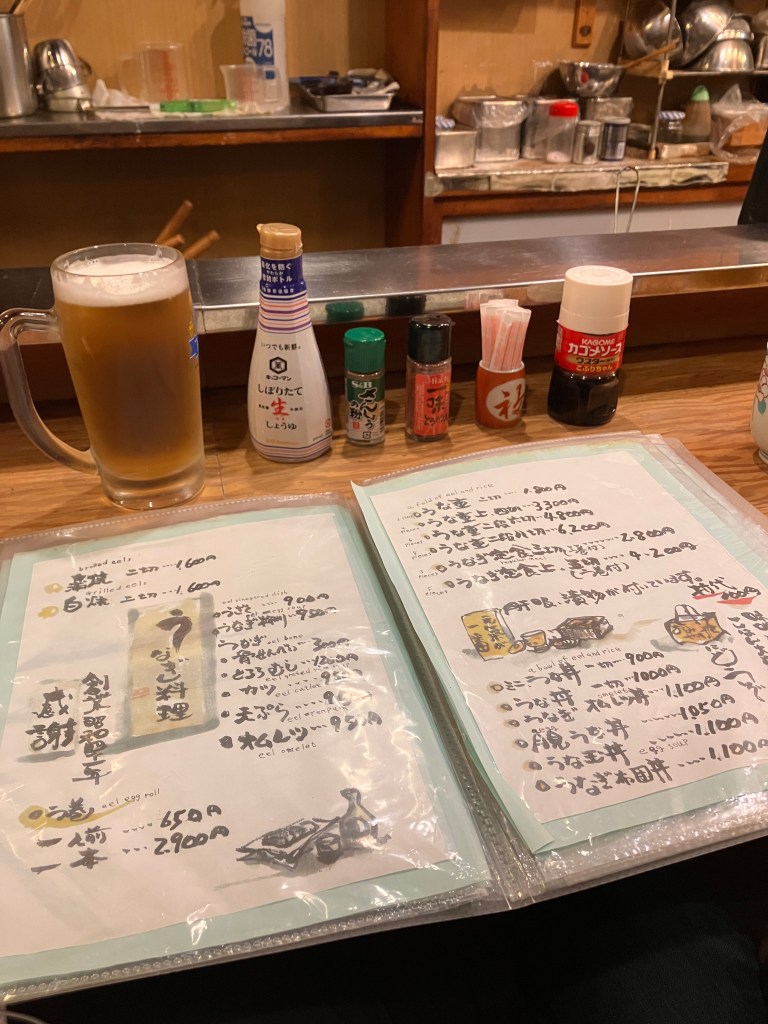 78
鮮度を防ぐ
密封ボトル
いつでも新鮮。
キッコーマン
しぼりたて
生
しょうゆ
S&B
さんしょう
の粉
一味
福
KAGOME
カゴメソース
ウスター
こぶりちゃん
broiled eels
蒲焼 二切…1,600円
grilled eels
白焼 二切…1,600円
うなぎ料理
創業昭和四十一年
感謝
eel vinegared dish
うざく… 900円
うなぎ柳川… 950円
うなぎ
eel bone
骨せんべい… 300円
とろろむし… 1200円
カツ
eel cutlet
天ぷら
オムレツ… 950円
eel omelet
う巻 eel egg roll
一人前 …… 650円
一本 … 2,900円
a fold of eel and rice
うな重 二切… 1.800円
うな重上 四切… 3300円
うな重二段六切… 4.800円
うな重二段八切… 6,200円
うなぎ定食三切(う巻付)… 2.800円
うなぎ定食上 五切(う巻付)… 4.200円
肝吸、漬物が付いています。
a bowl of eel and rice
ミニうな丼 一切… 900円
うな丼 一切… 1000円
うなぎオムレツ丼… 1.100円
腕うな丼 … 1,050円
うな玉丼 … 1,100円
egg soup
うなぎ木の国丼 … 1,100円